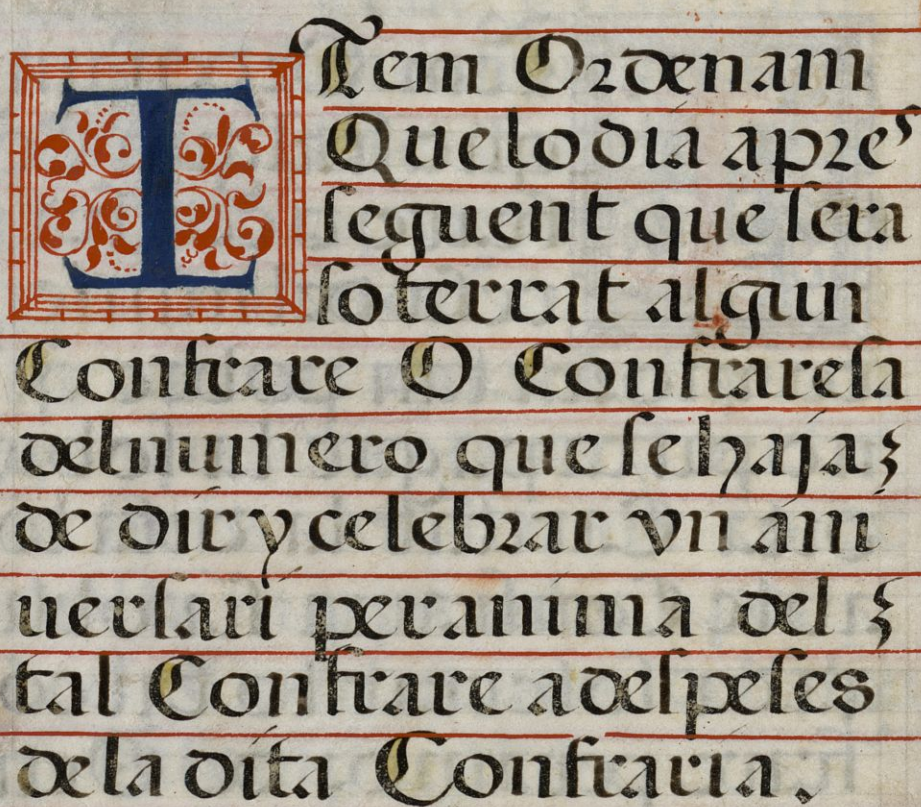 ITem Ordenam
Que lo dia apres
seguent que sera
soterrat algun
Confrare O Confraresa
del numero que se haja
de dir y celebrar vn ani
uersari per anima del
tal Confrare a despeses
de la dita Confraria.